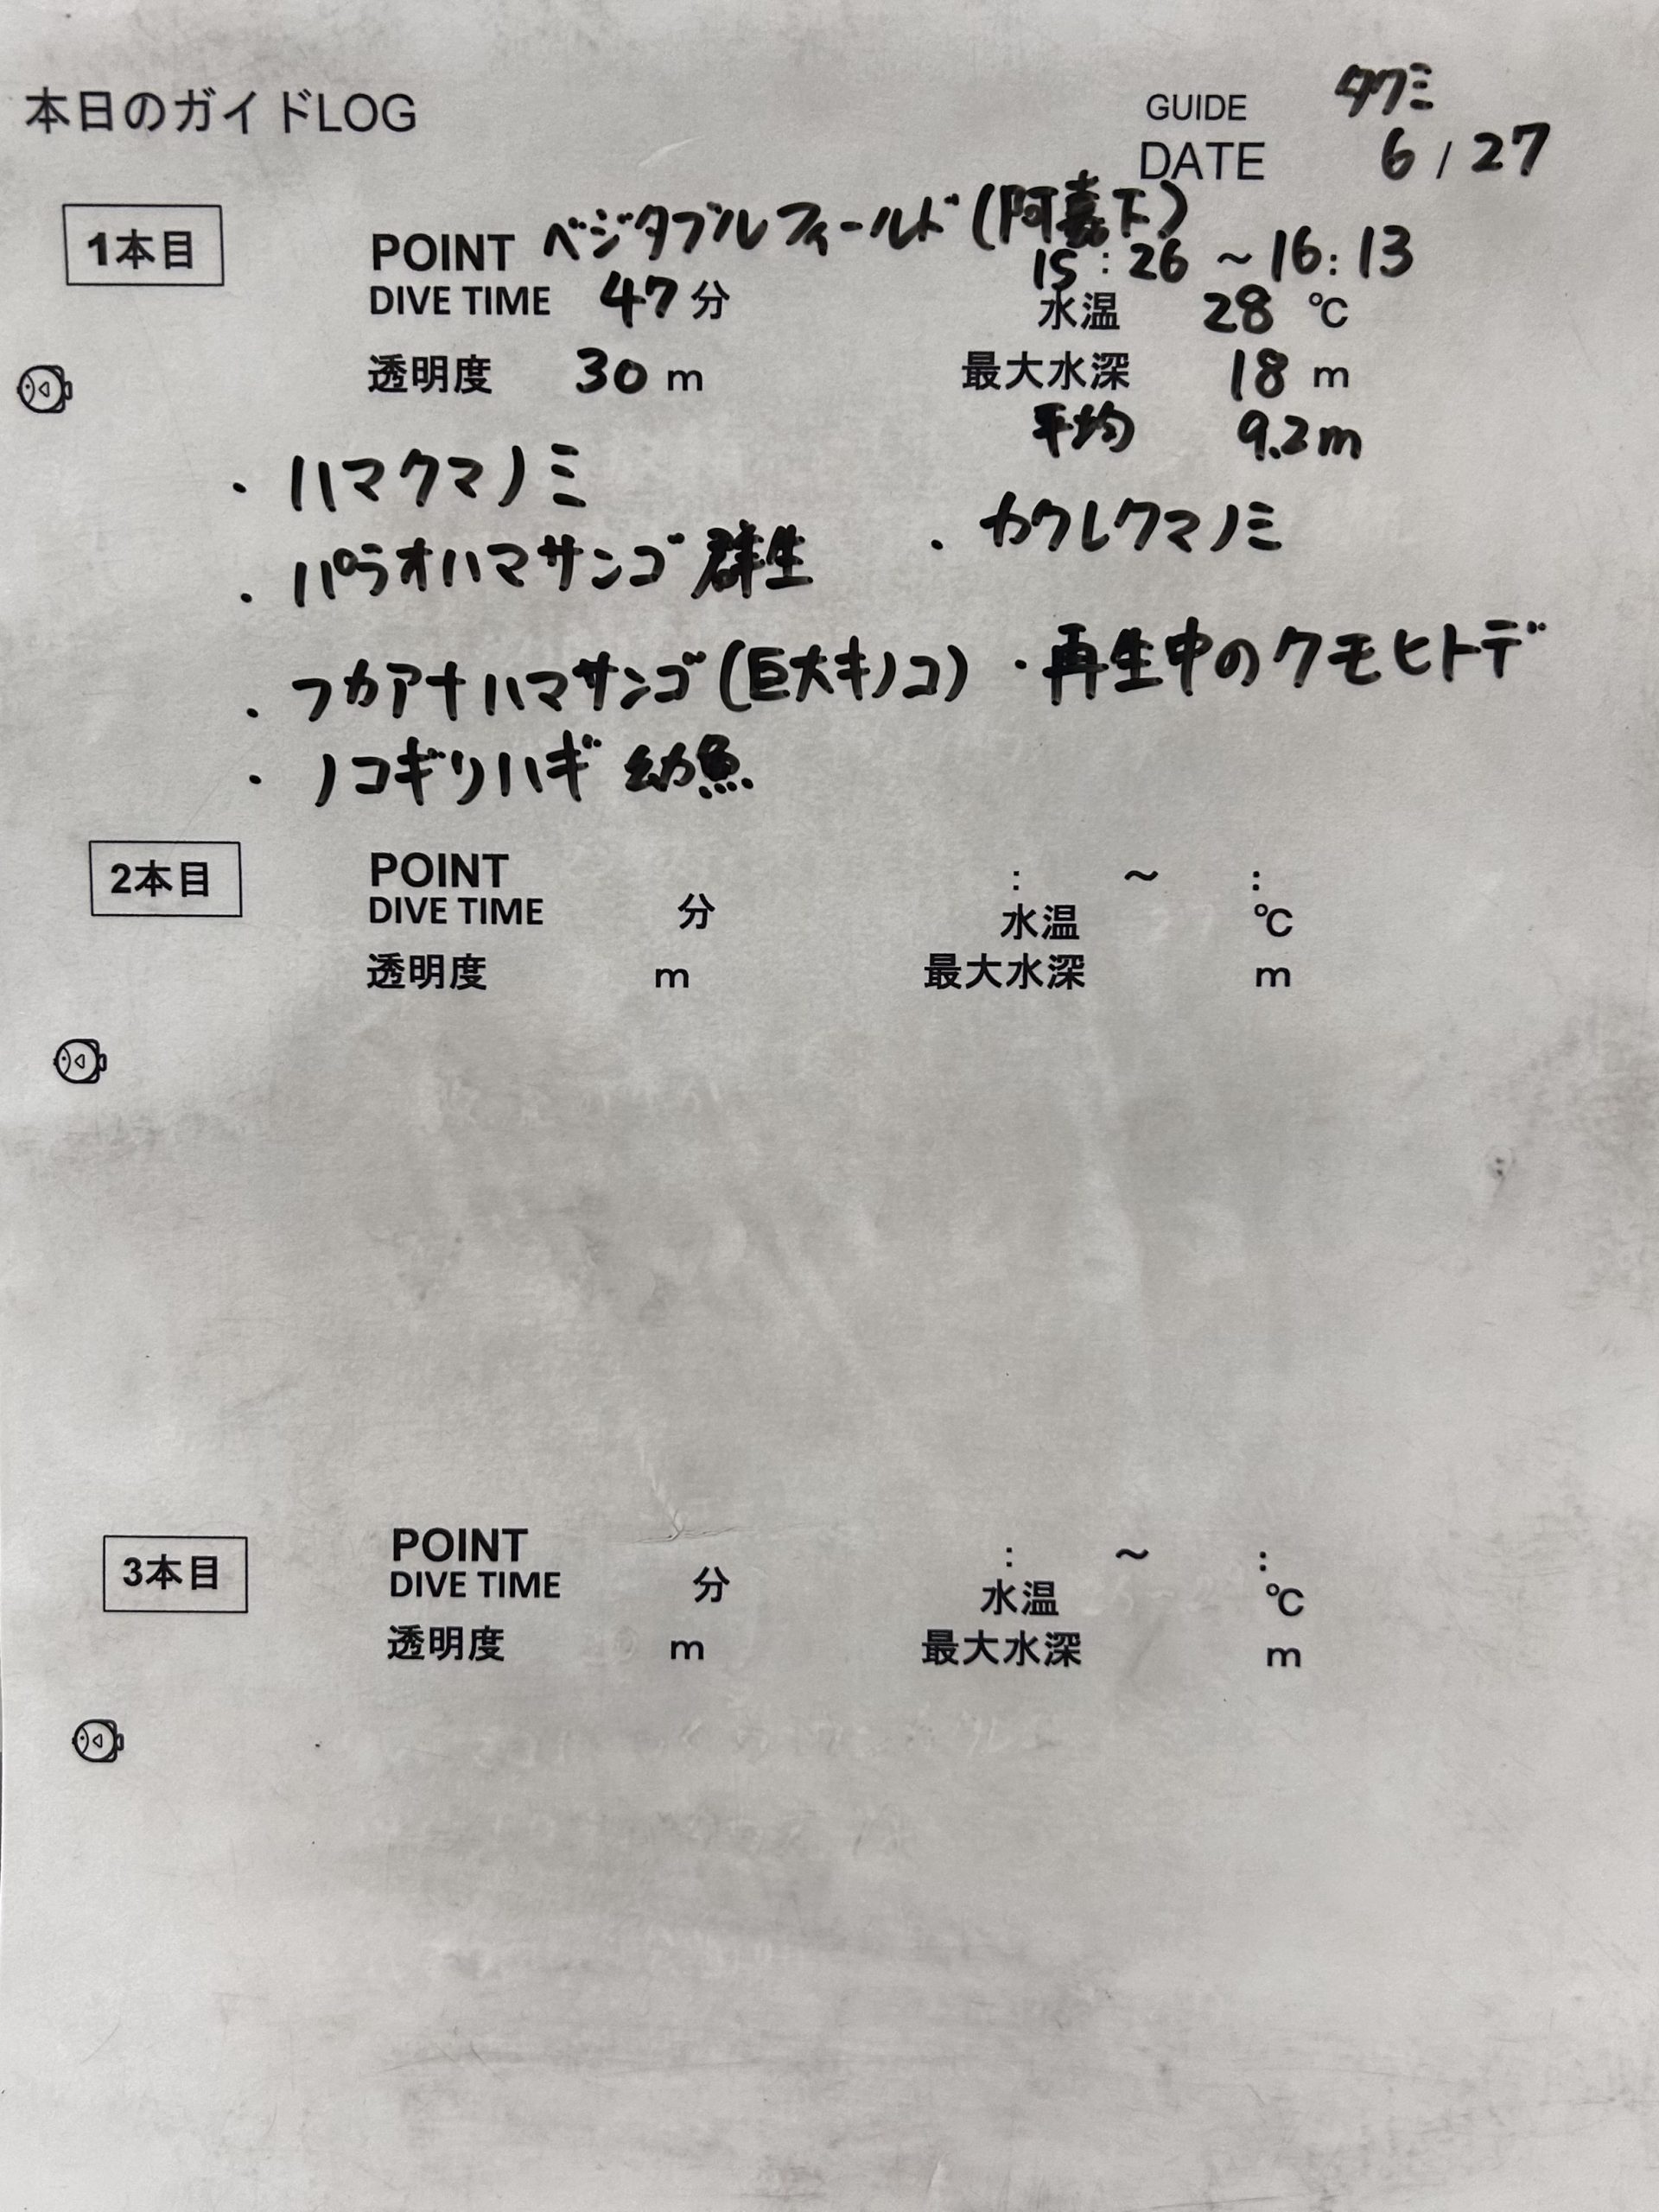 本日のガイドLOG
GUIDE タクミ
DATE 6 / 27
1本目
POINT ベジタブルフィールド(阿嘉下)
15:26 ~ 16:13
DIVE TIME 47 分 水温 28 ℃
透明度 30 m 最大水深 18 m
平均 9.2m
・ハマクマノミ
・パラオハマサンゴ 群生 ・カクレクマノミ
・フカアナハマサンゴ(巨大キノコ) ・再生中のクモヒトデ
・ノコギリハギ 幼魚
2本目
POINT : ~ :
DIVE TIME 分 水温 ℃
透明度 m 最大水深 m
3本目
POINT : ~ :
DIVE TIME 分 水温 ℃
透明度 m 最大水深 m